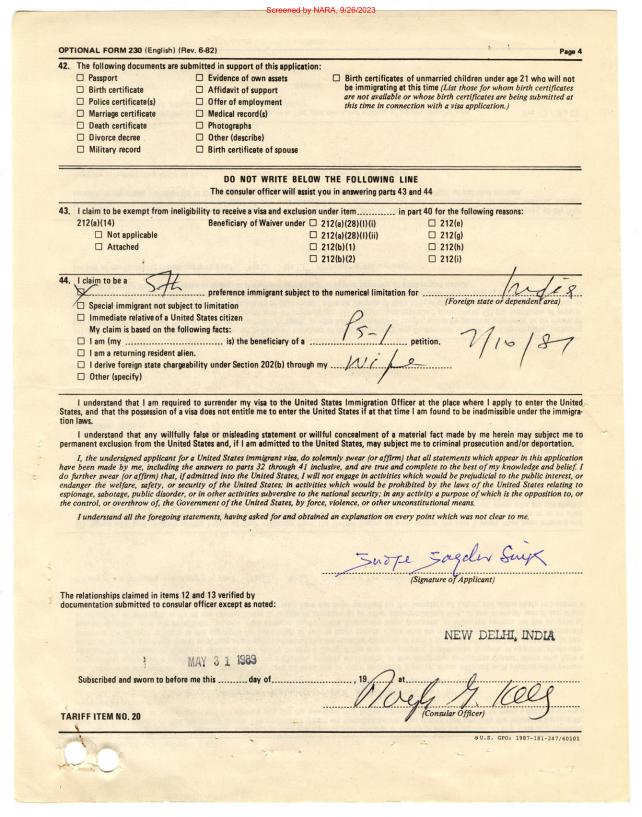 Screened by NARA, 9/26/2023
OPTIONAL FORM 230 (English) (Rev. 6-82) Page 4
42. The following documents are submitted in support of this application:
☐ Passport
☐ Birth certificate
☐ Police certificate(s)
☐ Marriage certificate
☐ Death certificate
☐ Divorce decree
☐ Military record
☐ Evidence of own assets
☐ Affidavit of support
☐ Offer of employment
☐ Medical record(s)
☐ Photographs
☐ Other (describe)
☐ Birth certificate of spouse
☐ Birth certificates of unmarried children under age 21 who will not
be immigrating at this time (List those for whom birth certificates
are not available or whose birth certificates are being submitted at
this time in connection with a visa application.)
DO NOT WRITE BELOW THE FOLLOWING LINE
The consular officer will assist you in answering parts 43 and 44
43. I claim to be exempt from ineligibility to receive a visa and exclusion under item............ in part 40 for the following reasons:
212(a)(14) Beneficiary of Waiver under ☐ 212(a)(28)(I)(i) ☐ 212(e)
☐ Not applicable ☐ 212(a)(28)(I)(ii) ☐ 212(g)
☐ Attached ☐ 212(b)(1) ☐ 212(h)
☐ 212(b)(2) ☐ 212(i)
44. I claim to be a 5th preference immigrant subject to the numerical limitation for India
(Foreign state or dependent area)
☐ Special immigrant not subject to limitation
☐ Immediate relative of a United States citizen
My claim is based on the following facts:
☐ I am (my ........................ is) the beneficiary of a P5-1 petition. 7/10/87
☐ I am a returning resident alien.
☐ I derive foreign state chargeability under Section 202(b) through my Wife
☐ Other (specify)
I understand that I am required to surrender my visa to the United States Immigration Officer at the place where I apply to enter the United
States, and that the possession of a visa does not entitle me to enter the United States if at that time I am found to be inadmissible under the immigra-
tion laws.
I understand that any willfully false or misleading statement or willful concealment of a material fact made by me herein may subject me to
permanent exclusion from the United States and, if I am admitted to the United States, may subject me to criminal prosecution and/or deportation.
I, the undersigned applicant for a United States immigrant visa, do solemnly swear (or affirm) that all statements which appear in this application
have been made by me, including the answers to parts 32 through 41 inclusive, and are true and complete to the best of my knowledge and belief. I
do further swear (or affirm) that, if admitted into the United States, I will not engage in activities which would be prejudicial to the public interest, or
endanger the welfare, safety, or security of the United States; in activities which would be prohibited by the laws of the United States relating to
espionage, sabotage, public disorder, or in other activities subversive to the national security; in any activity a purpose of which is the opposition to, or
the control, or overthrow of, the Government of the United States, by force, violence, or other unconstitutional means.
I understand all the foregoing statements, having asked for and obtained an explanation on every point which was not clear to me.
(Signature of Applicant)
The relationships claimed in items 12 and 13 verified by
documentation submitted to consular officer except as noted:
NEW DELHI, INDIA
MAY 31 1989
Subscribed and sworn to before me this .........day of............................, 19 at
(Consular Officer)
TARIFF ITEM NO. 20
☆U.S. GPO: 1987-181-247/60101